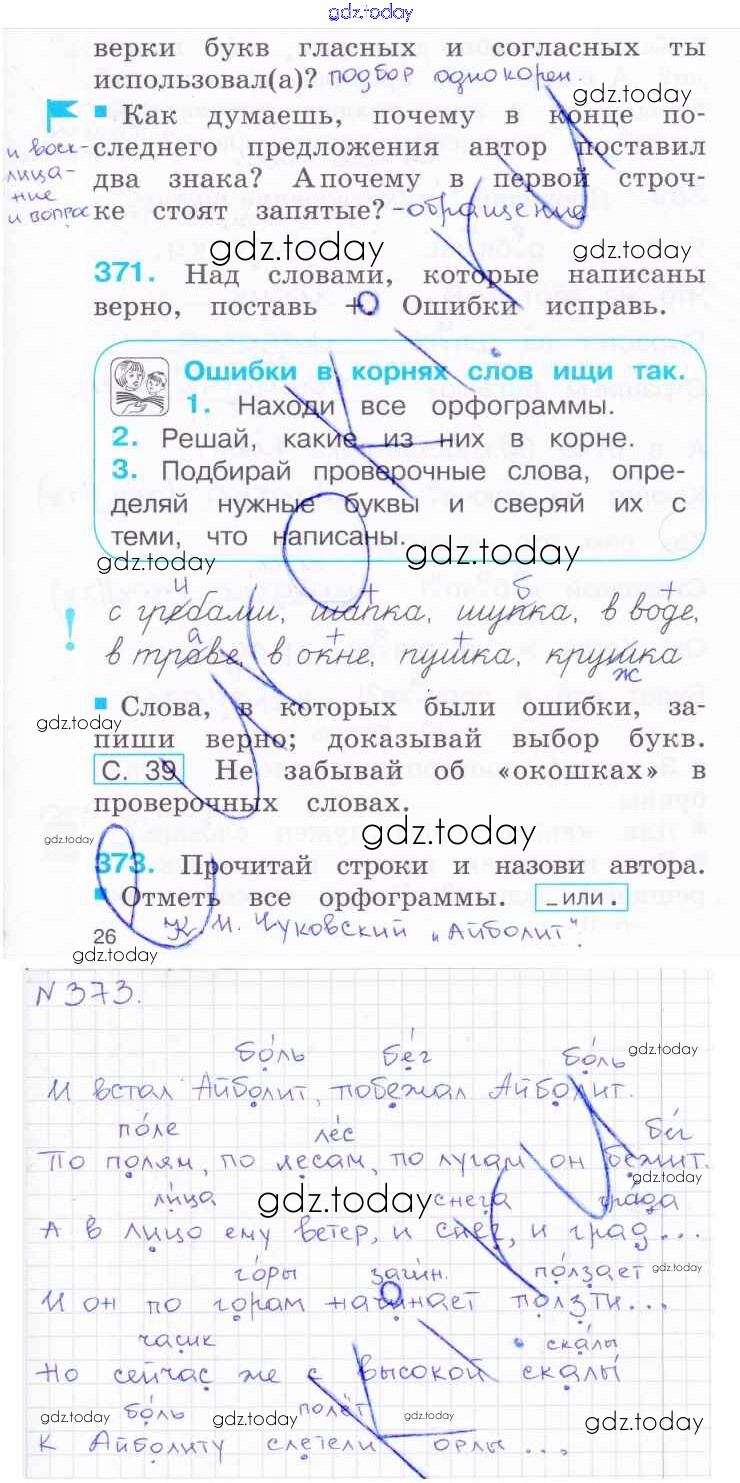 gdz.today
верки букв гласных и согласных ты
использовал(а)? подбор однокорен
gdz.today
Как думаешь, почему в конце по-
и воск-
следнего предложения автор поставил
лица-
два знака? А почему в первой строч-
ние
и вопрос
ке стоят запятые? - обращение
gdz.today
gdz.today
371. Над словами, которые написаны
верно, поставь +. Ошибки исправь.
Ошибки в корнях слов ищи так.
1. Находи все орфограммы.
2. Решай, какие из них в корне.
3. Подбирай проверочные слова, опре-
деляй нужные буквы и сверяй их с
теми, что написаны.
gdz.today
gdz.today
и + б +
! с гребами, шапка, шупка, в воде,
а + +
в трове, в окне, пушка, крушка
ж
Слова, в которых были ошибки, за-
gdz.today
пиши верно; доказывай выбор букв.
С. 39 Не забывай об «окошках» в
проверочных словах.
gdz.today
373. Прочитай строки и назови автора.
Отметь все орфограммы. _ или .
26 К. И. Чуковский „Айболит".
gdz.today
N 373.
бо́ль бе́г бо́ль
gdz.today
И встал Айболит, побежал Айболит.
по́ле ле́с бе́г
По полям, по лесам, по лугам он бежит.
ли́ца снега гра́да
gdz.today
А в лицо ему ветер, и снег, и град...
го́ры зачи́н. по́лзает
gdz.today
И он по горам начинает ползти...
часик ска́лы
Но сейчас же с высокой скалы́
бо́ль полёт
gdz.today gdz.today gdz.today gdz.today
К Айболиту слетели орлы...